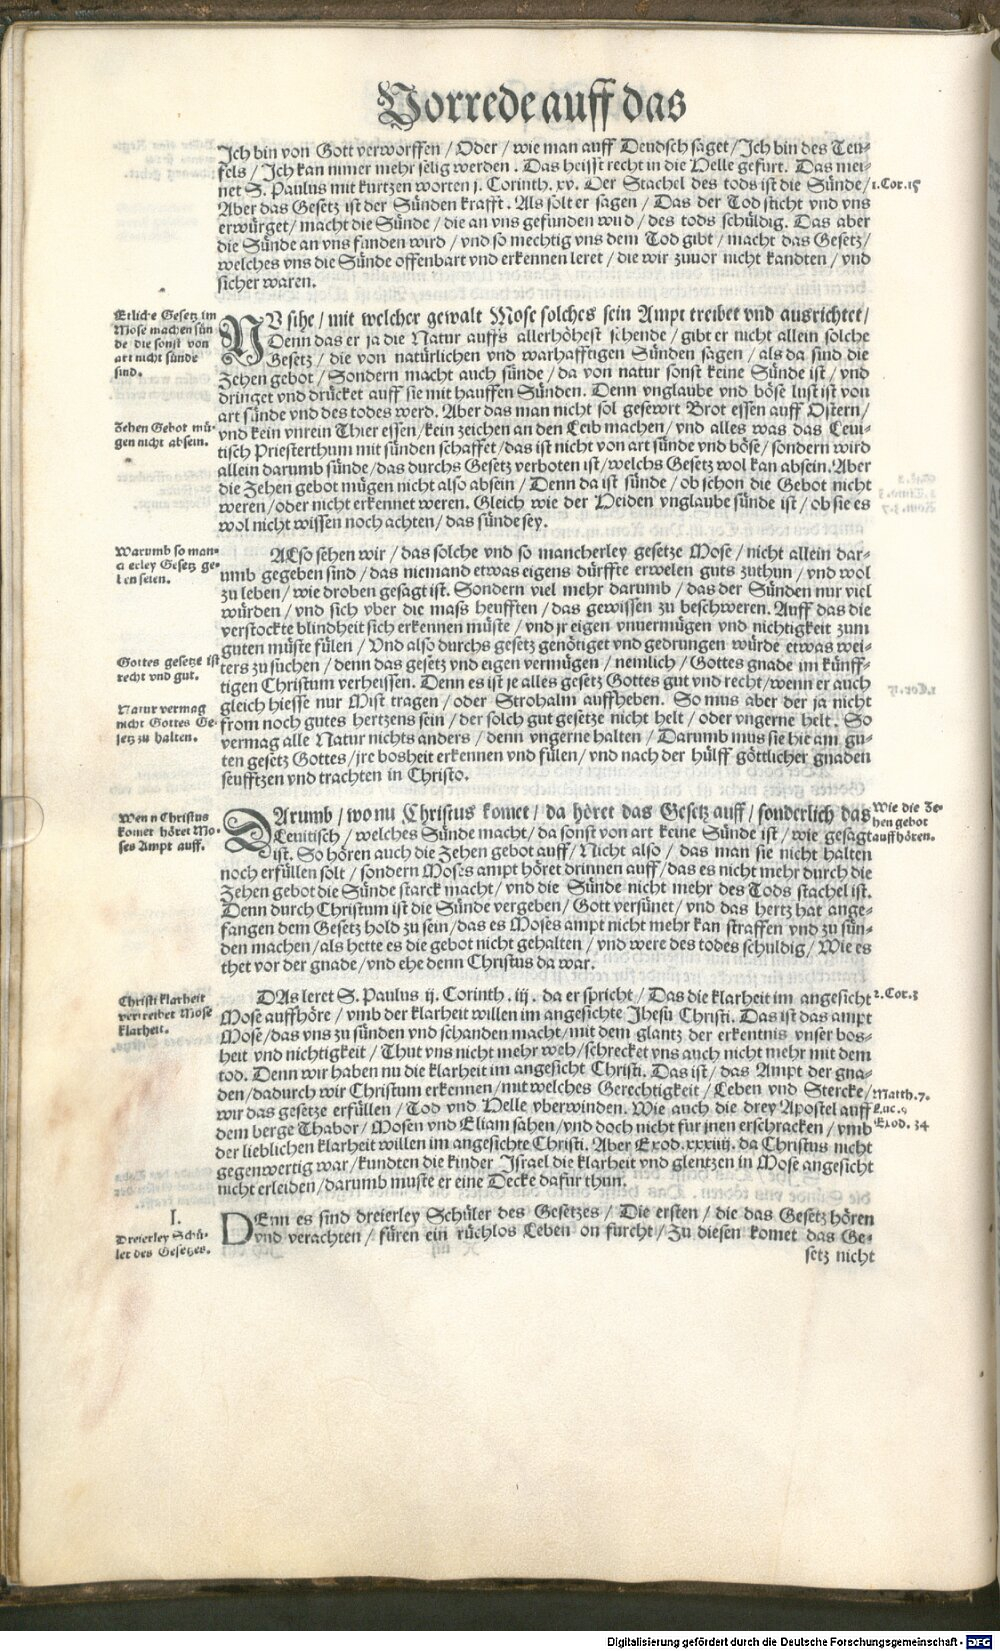 Vorrede auff das
Ich bin von Gott verworffen / Oder / wie man auff Deudsch saget / Ich bin des Teu-
fels / Ich kan nimer mehr selig werden . Das heisst recht in die Helle gefürt. Das mei-
net S. Paulus mit kurtzen worten j. Corinth. xv. Der Stachel des tods ist die Sünde /
1. Cor. 15
Aber das Gesetz ist der Sünden krafft . Als solt er sagen / Das der Tod sticht vnd vns
erwürget / macht die Sünde / die an vns gefunden wird / des tods schüldig. Das aber
die Sünde an vns funden wird / vnd so mechtig vns dem Tod gibt / macht das Gesetz /
welches vns die Sünde offenbart vnd erkennen leret / die wir zuuor nicht kandten / vnd
sicher waren.
Etliche Gesetz im
Mose machen sün
de die sonst von
art nicht sünde
sind.
NV sihe / mit welcher gewalt Mose solches sein Ampt treibet vnd ausrichtet /
Denn das er ja die Natur auffs allerhöhest schende / gibt er nicht allein solche
Gesetz / die von natürlichen vnd warhafftigen Sünden sagen / als da sind die
Zehen gebot / Sondern macht auch sünde / da von natur sonst keine Sünde ist / vnd
dringet vnd drücket auff sie mit hauffen Sünden. Denn vnglaube vnd böse lust ist von
art sünde vnd des todes werd. Aber das man nicht sol gesewrt Brot essen auff Ostern /
Zehen Gebot mü-
gen nicht absein.
vnd kein vnrein Thier essen / kein zeichen an den Leib machen / vnd alles was das Leui-
tisch Priesterthum mit sünden schaffet / das ist nicht von art sünde vnd böse / sondern wird
allein darumb sünde / das durchs Gesetz verboten ist / welchs Gesetz wol kan absein. Aber
die Zehen gebot mügen nicht also absein / Denn da ist sünde / ob schon die Gebot nicht
weren / oder nicht erkennet weren. Gleich wie der Heiden vnglaube sünde ist / ob sie es
wol nicht wissen noch achten / das sünde sey.
Warumb so man-
cherley Gesetz ge-
ben seien.
ALso sehen wir / das solche vnd so mancherley gesetze Mose / nicht allein dar-
umb gegeben sind / das niemand etwas eigens dürffte erwelen guts zuthun / vnd wol
zu leben / wie droben gesagt ist. Sondern viel mehr darumb / das der Sünden nur viel
würden / vnd sich vber die mass heufften / das gewissen zu beschweren. Auff das die
verstockte blindheit sich erkennen müste / vnd jr eigen vnuermügen vnd nichtigkeit zum
guten müste fülen / Vnd also durchs gesetz genötiget vnd gedrungen würde etwas wei-
Gottes gesetze ist
recht vnd gut.
ters zu suchen / denn das gesetz vnd eigen vermügen / nemlich / Gottes gnade im künff-
tigen Christum verheissen. Denn es ist je alles gesetz Gottes gut vnd recht / wenn er auch
gleich hiesse nur Mist tragen / oder Strohalm auffheben. So mus aber der ja nicht
Natur vermag
nicht Gottes Ge-
setz zu halten.
from noch gutes hertzens sein / der solch gut gesetze nicht helt / oder vngerne helt. So
vermag alle Natur nichts anders / denn vngerne halten / Darumb mus sie hie am gu-
ten gesetz Gottes / jre bosheit erkennen vnd fülen / vnd nach der hülff göttlicher gnaden
seufftzen vnd trachten in Christo.
Wenn Christus
komet höret Mo-
ses Ampt auff.
DArumb / wo nu Christus komet / da höret das Gesetz auff / sonderlich das
Wie die Ze-
hen gebot
auffhören.
Leuitisch / welches Sünde macht / da sonst von art keine Sünde ist / wie gesagt
ist. So hören auch die Zehen gebot auff / Nicht also / das man sie nicht halten
noch erfüllen solt / sondern Moses ampt höret drinnen auff / das es nicht mehr durch die
Zehen gebot die Sünde starck macht / vnd die Sünde nicht mehr des Tods stachel ist.
Denn durch Christum ist die Sünde vergeben / Gott versünet / vnd das hertz hat ange-
fangen dem Gesetz hold zu sein / das es Moses ampt nicht mehr kan straffen vnd zu sün-
den machen / als hette es die gebot nicht gehalten / vnd were des todes schuldig / Wie es
thet vor der gnade / vnd ehe denn Christus da war.
Christi klarheit
vertreibet Mose
klarheit.
DAs leret S. Paulus ij. Corinth. iij. da er spricht / Das die klarheit im angesicht
2. Cor. 3
Mose auffhöre / vmb der klarheit willen im angesichte Jhesu Christi. Das ist das ampt
Mose / das vns zu sünden vnd schanden macht / mit dem glantz der erkentnis vnser bos-
heit vnd nichtigkeit / Thut vns nicht mehr weh / schrecket vns auch nicht mehr mit dem
tod. Denn wir haben nu die klarheit im angesicht Christi. Das ist / das Ampt der gna-
den / dadurch wir Christum erkennen / mit welches Gerechtigkeit / Leben vnd Stercke /
Matth. 7.
wir das gesetze erfüllen / Tod vnd Helle vberwinden. Wie auch die drey Apostel auff
Luc. 9
dem berge Thabor / Mosen vnd Eliam sahen / vnd doch nicht für jnen erschracken / vmb
Exod. 34
der lieblichen klarheit willen im angesichte Christi. Aber Exod. xxxiiij. da Christus nicht
gegenwertig war / kundten die kinder Israel die klarheit vnd glentzen in Mose angesicht
nicht erleiden / darumb muste er eine Decke dafür thun.
I.
Dreierley Schü-
ler des Gesetzes.
DEnn es sind dreierley Schüler des Gesetzes / Die ersten / die das Gesetz hören
vnd verachten / füren ein rüchlos Leben on furcht / Zu diesen komet das Ge-
setz nicht
Digitalisierung gefördert durch die Deutsche Forschungsgemeinschaft - DFG